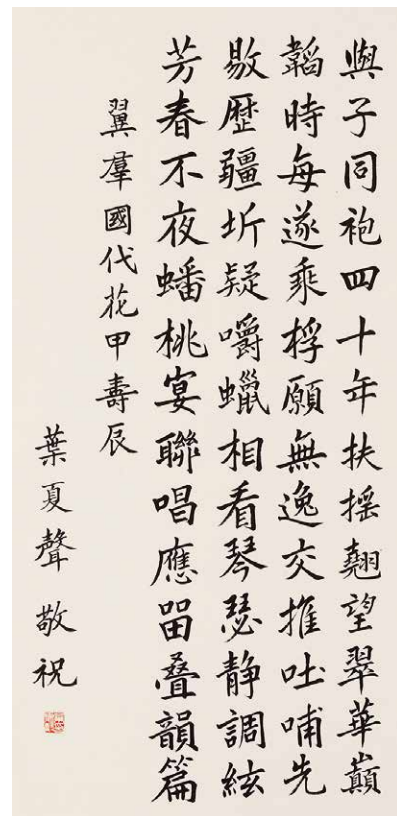 與子同袍四十年扶搖翹望翠華巔
韜時每遂乘桴願無逸交推吐哺先
敭歷疆圻疑嚼蠟相看琴瑟静調絃
芳春不夜蟠桃宴聯唱應留叠韻篇
翼羣國代花甲壽辰
葉夏聲敬祝